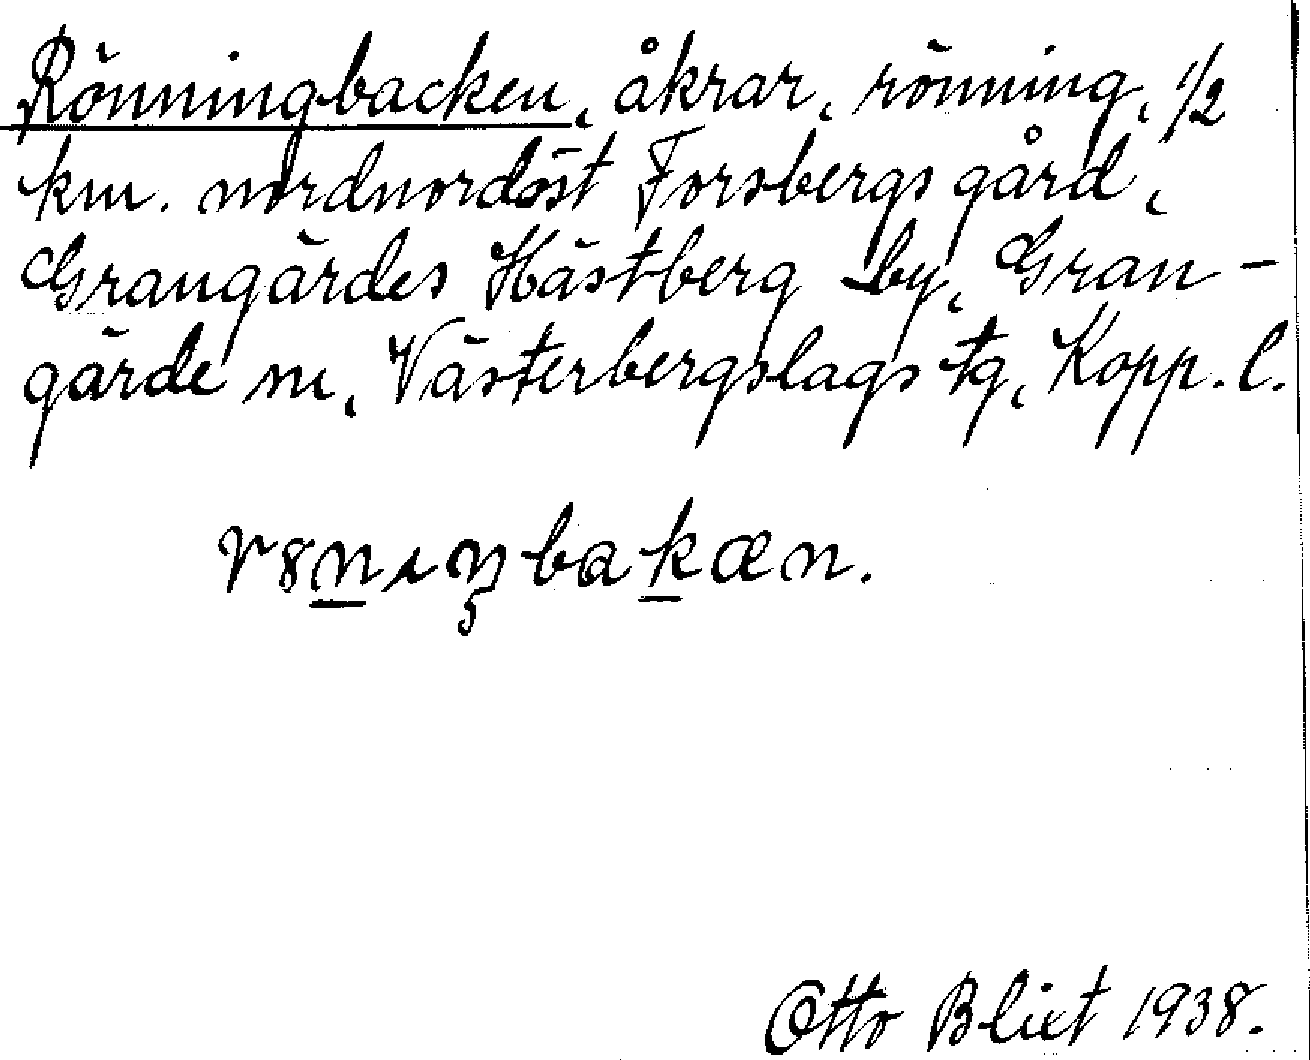 Rönningbacken, åkrar, rönning, 1/2
km. nordnordöst Forsbergsgård,
Grangärdes Hästberg by, Gran-
gärde sn, Västerbergslags tg, Kopp. l.
r8nıŋbakæn.
Otto Blixt 1938.